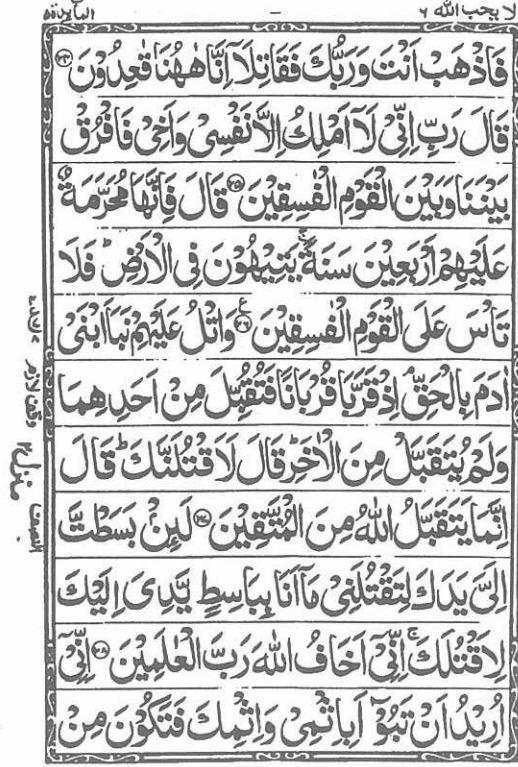 لا یحب الله ۶
المآىِٕدة ۵
فَاذْهَبْ اَنْتَ وَرَبُّكَ فَقَاتِلَاۤ اِنَّا هٰهُنَا قٰعِدُوْنَ ﴿۲۴﴾
قَالَ رَبِّ اِنِّیْ لَاۤ اَمْلِكُ اِلَّا نَفْسِیْ وَاَخِیْ فَافْرُقْ
بَیْنَنَا وَبَیْنَ الْقَوْمِ الْفٰسِقِیْنَ ﴿۲۵﴾ قَالَ فَاِنَّهَا مُحَرَّمَةٌ
عَلَیْهِمْ اَرْبَعِیْنَ سَنَةً ۚ یَتِیْهُوْنَ فِی الْاَرْضِ ؕ فَلَا
تَاْسَ عَلَی الْقَوْمِ الْفٰسِقِیْنَ ﴿۲۶﴾ ع وَاتْلُ عَلَیْهِمْ نَبَاَ ابْنَیْ
اٰدَمَ بِالْحَقِّ ۘ اِذْ قَرَّبَا قُرْبَانًا فَتُقُبِّلَ مِنْ اَحَدِهِمَا
وَلَمْ یُتَقَبَّلْ مِنَ الْاٰخَرِ ؕ قَالَ لَاَقْتُلَنَّكَ ؕ قَالَ
اِنَّمَا یَتَقَبَّلُ اللّٰهُ مِنَ الْمُتَّقِیْنَ ﴿۲۷﴾ لَىِٕنْۢ بَسَطْتَّ
اِلَیَّ یَدَكَ لِتَقْتُلَنِیْ مَاۤ اَنَا بِبَاسِطٍ یَّدِیَ اِلَیْكَ
لِاَقْتُلَكَ ۚ اِنِّیْۤ اَخَافُ اللّٰهَ رَبَّ الْعٰلَمِیْنَ ﴿۲۸﴾ اِنِّیْۤ
اُرِیْدُ اَنْ تَبُوْٓاَ بِاِثْمِیْ وَاِثْمِكَ فَتَكُوْنَ مِنْ
وقف لازم
منزل ۲
النصف